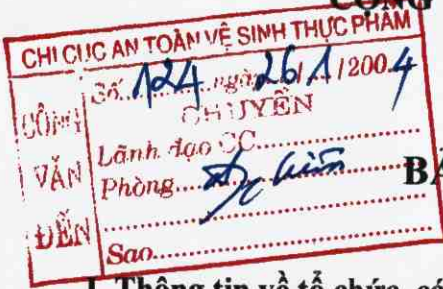 CỘNG
CHI CỤC AN TOÀN VỆ SINH THỰC PHẨM
CÔNG VĂN ĐẾN
Số 124 ngày 26/1/2004
CHUYỂN
Lãnh đạo CC
Phòng
BẢ
Sao
I. Thông tin về tổ chức, cá